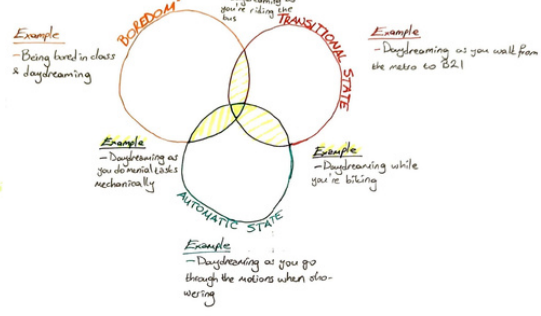 you're riding the
bus
BOREDOM
TRANSITIONAL STATE
Example
- Being bored in class
& daydreaming
Example
- Daydreaming as you walk from
the metro to B21
Example
- Daydreaming as
you do menial tasks
mechanically
Example
- Daydreaming while
you're biking
AUTOMATIC STATE
Example
- Daydreaming as you go
through the motions when sho-
wering